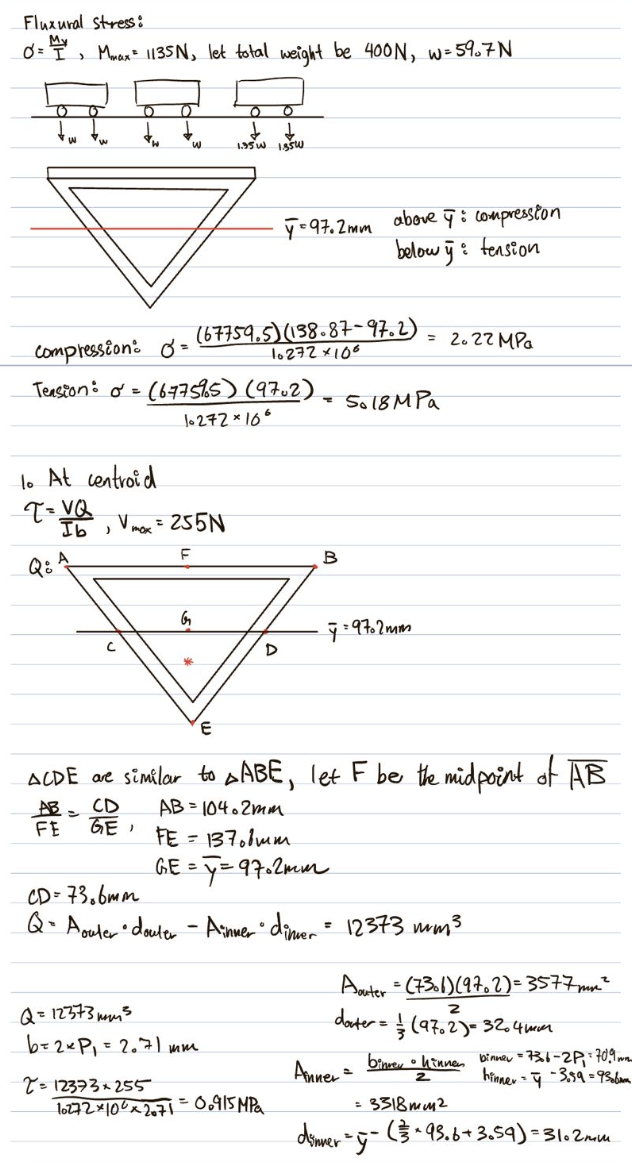 Fluxural stress:
σ = My/I , Mmax = 1135N, let total weight be 400N, w = 59.7N
w w w w 1.35W 1.35W
ȳ = 97.2mm
above ȳ : compression
below ȳ : tension
compression: σ = (67759.5)(138.87-97.2) / 1.272 × 10⁶ = 2.22 MPa
Tension: σ = (67759.5)(97.2) / 1.272 × 10⁶ = 5.18 MPa
1. At centroid
τ = VQ/Ib , Vmax = 255N
Q: A F B
G
ȳ = 97.2mm
C D
*
E
△CDE are similar to △ABE, let F be the midpoint of AB
AB/FE = CD/GE , AB = 104.2mm
FE = 137.8mm
GE = ȳ = 97.2mm
CD = 73.6mm
Q = Aouter · douter - Ainner · dinner = 12373 mm³
Aouter = (73.6)(97.2)/2 = 3577mm²
douter = 1/3 (97.2) = 32.4mm
Q = 12373 mm³
b = 2 × P₁ = 2.71 mm
τ = 12373 × 255 / 1.272 × 10⁶ × 2.71 = 0.915 MPa
Ainner = binner · hinner / 2 binner = 73.6 - 2P₁ = 70.9mm
hinner = ȳ - 3.59 = 93.6mm
= 3318mm²
dinner = ȳ - (2/3 × 93.6 + 3.59) = 31.2mm